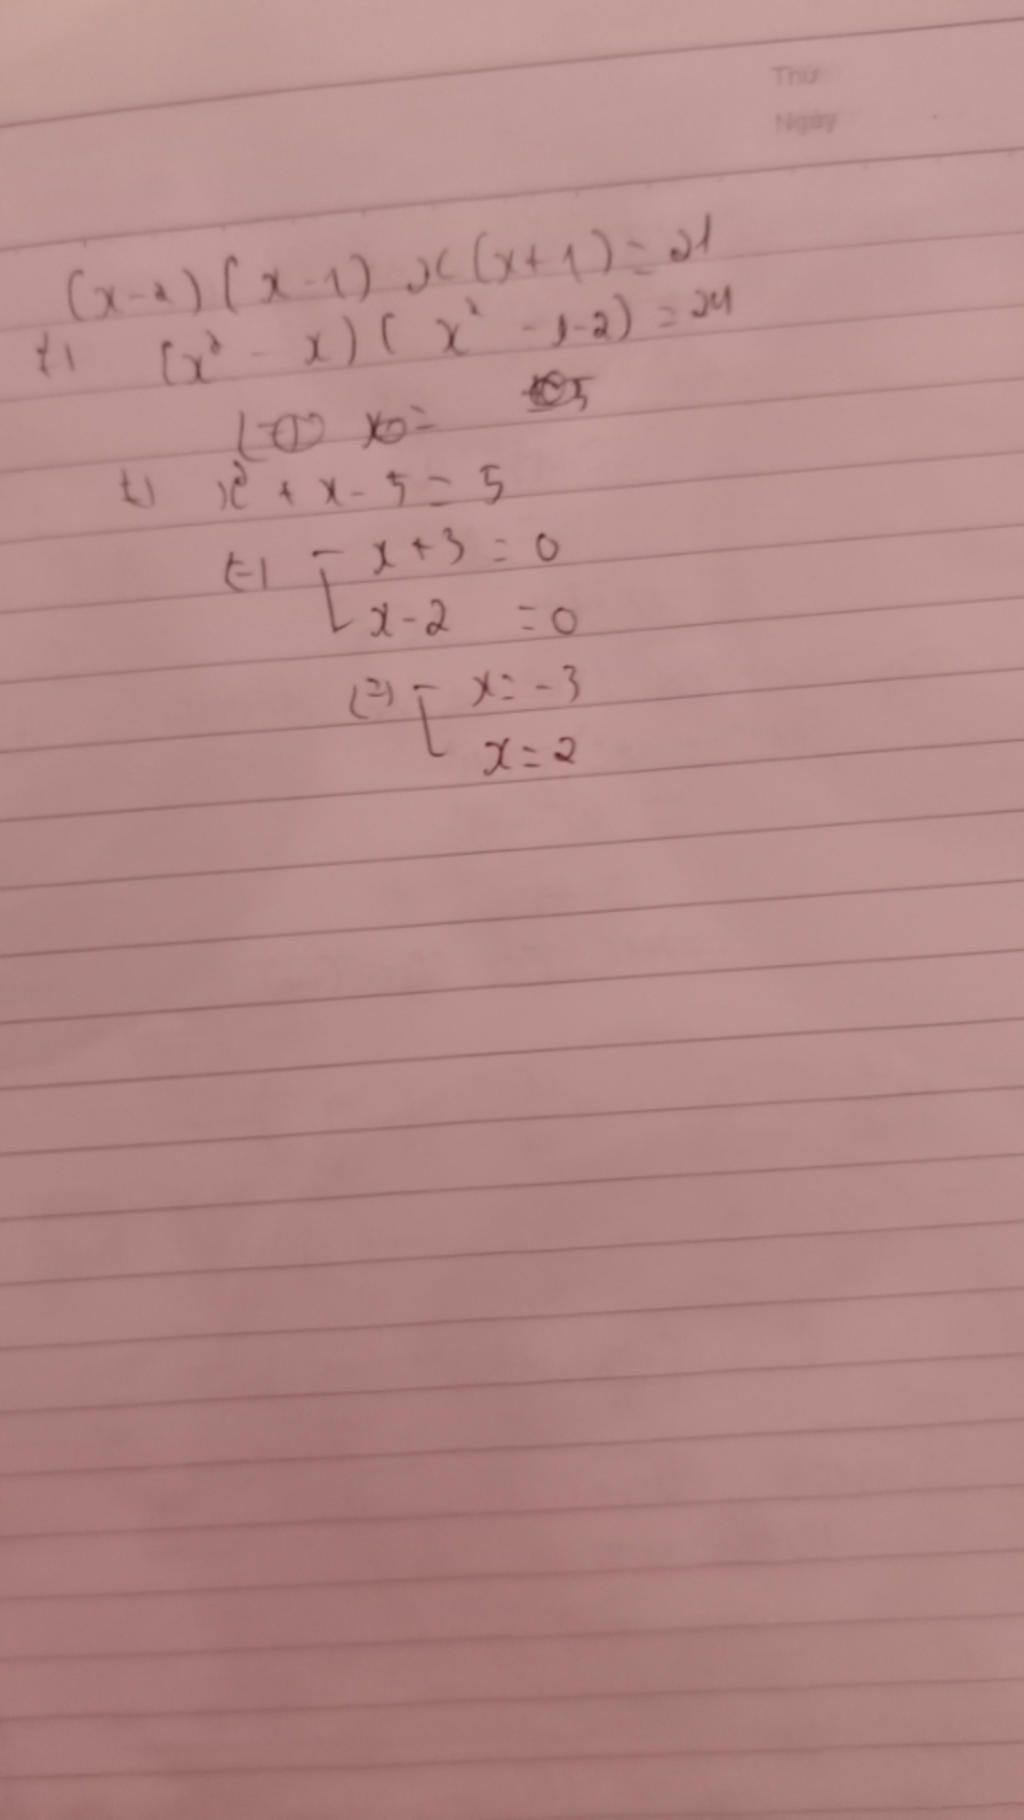 Thứ
Ngày
(x-2)(x-1)x(x+1)=24
(x² - x)(x² - x-2) = 24
x² + x - 5 = 5
x+3 = 0
x-2 = 0
x = -3
x = 2